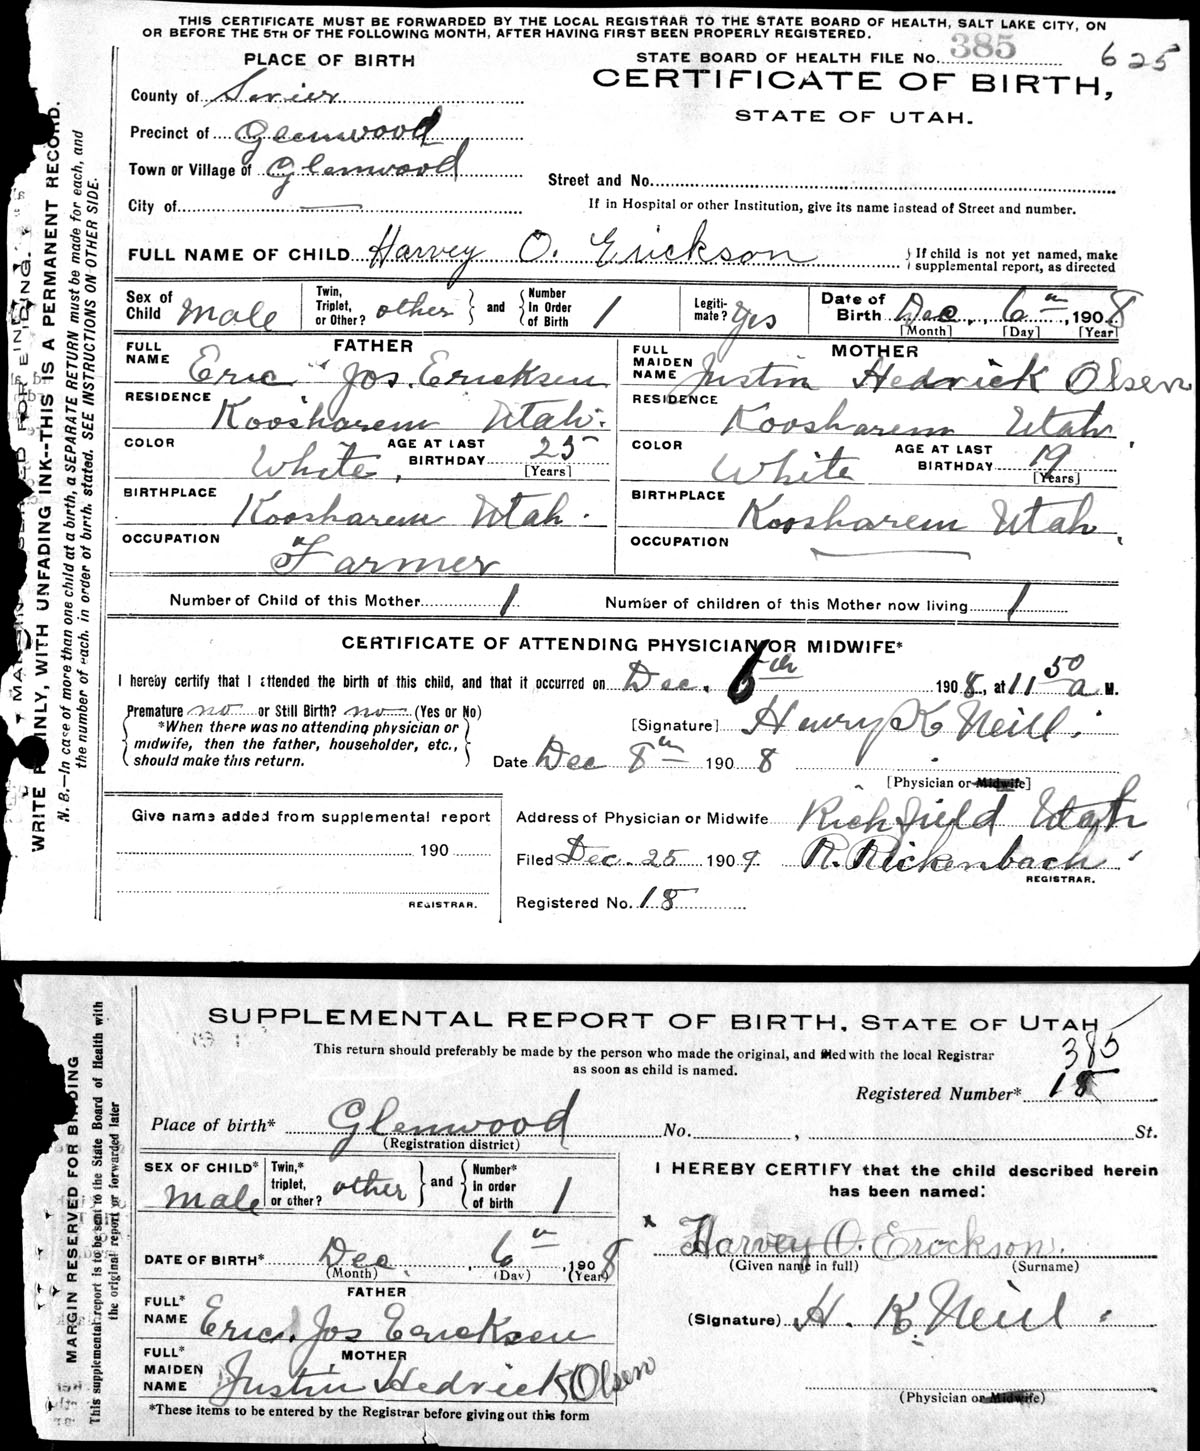 THIS CERTIFICATE MUST BE FORWARDED BY THE LOCAL REGISTRAR TO THE STATE BOARD OF HEALTH, SALT LAKE CITY, ON
OR BEFORE THE 5TH OF THE FOLLOWING MONTH, AFTER HAVING FIRST BEEN PROPERLY REGISTERED.
PLACE OF BIRTH
STATE BOARD OF HEALTH FILE NO. 385 625
CERTIFICATE OF BIRTH,
STATE OF UTAH.
County of Sevier
Precinct of Glenwood
Town or Village of Glenwood
Street and No.
City of
If in Hospital or other Institution, give its name instead of Street and number.
FULL NAME OF CHILD Harvey O. Erickson
If child is not yet named, make supplemental report, as directed
Sex of Child Male Twin, Triplet, or Other? other and Number In Order of Birth 1 Legitimate? Yes Date of Birth Dec. 6th, 1908
[Month] [Day] [Year]
FATHER
FULL NAME Eric Jos. Ericksen
RESIDENCE Koosharem Utah.
COLOR White. AGE AT LAST BIRTHDAY 25 [Years]
BIRTHPLACE Koosharem Utah.
OCCUPATION Farmer
MOTHER
FULL MAIDEN NAME Justin Hedrick Olsen
RESIDENCE Koosharem Utah.
COLOR White AGE AT LAST BIRTHDAY 19 [Years]
BIRTHPLACE Koosharem Utah.
OCCUPATION
Number of Child of this Mother 1 Number of children of this Mother now living 1
CERTIFICATE OF ATTENDING PHYSICIAN OR MIDWIFE*
I hereby certify that I attended the birth of this child, and that it occurred on Dec. 6th 1908, at 11 50 a M.
Premature no or Still Birth? no (Yes or No)
*When there was no attending physician or midwife, then the father, householder, etc., should make this return.
[Signature] Henry K Neill.
Date Dec 8th 1908
[Physician or Midwife]
Give name added from supplemental report
190
REGISTRAR.
Address of Physician or Midwife Richfield Utah
Filed Dec. 25 1909. R. Rickenbach.
REGISTRAR.
Registered No. 18
WRITE PLAINLY, WITH UNFADING INK--THIS IS A PERMANENT RECORD.
N. B.—In case of more than one child at a birth, a SEPARATE RETURN must be made for each, and
the number of each, in order of birth, stated. SEE INSTRUCTIONS ON OTHER SIDE.
SUPPLEMENTAL REPORT OF BIRTH, STATE OF UTAH
This return should preferably be made by the person who made the original, and filed with the local Registrar
as soon as child is named.
385
Registered Number* 18
Place of birth* Glenwood No. , St.
(Registration district)
SEX OF CHILD* Male Twin,* triplet, or other? other and Number* in order of birth 1
DATE OF BIRTH* Dec. , 6th, 1908
(Month) (Day) (Year)
FATHER
FULL* NAME Eric. Jos Ericksen
MOTHER
FULL* MAIDEN NAME Justin Hedrick Olsen
*These items to be entered by the Registrar before giving out this form
I HEREBY CERTIFY that the child described herein
has been named:
x Harvey O. Erockson.
(Given name in full) (Surname)
(Signature) H. K. Neill.
(Physician or Midwife)
MARGIN RESERVED FOR BINDING
This supplemental report is to be sent to the State Board of Health with
the original report or forwarded later